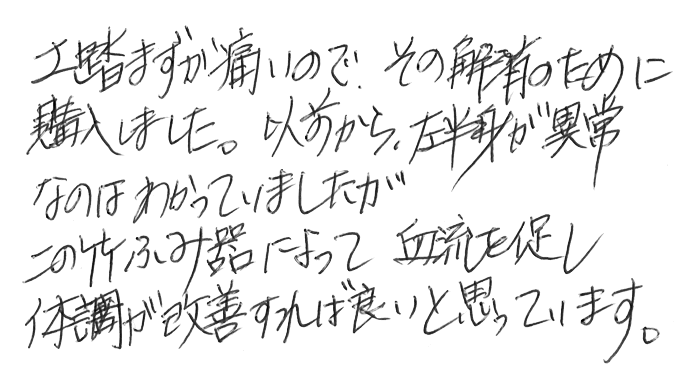 土踏まずが痛いので、その解消のために
購入しました。以前から、左半身が異常
なのはわかっていましたが
この竹ふみ器によって 血流を促し
体調が改善すれば良いと思っています。